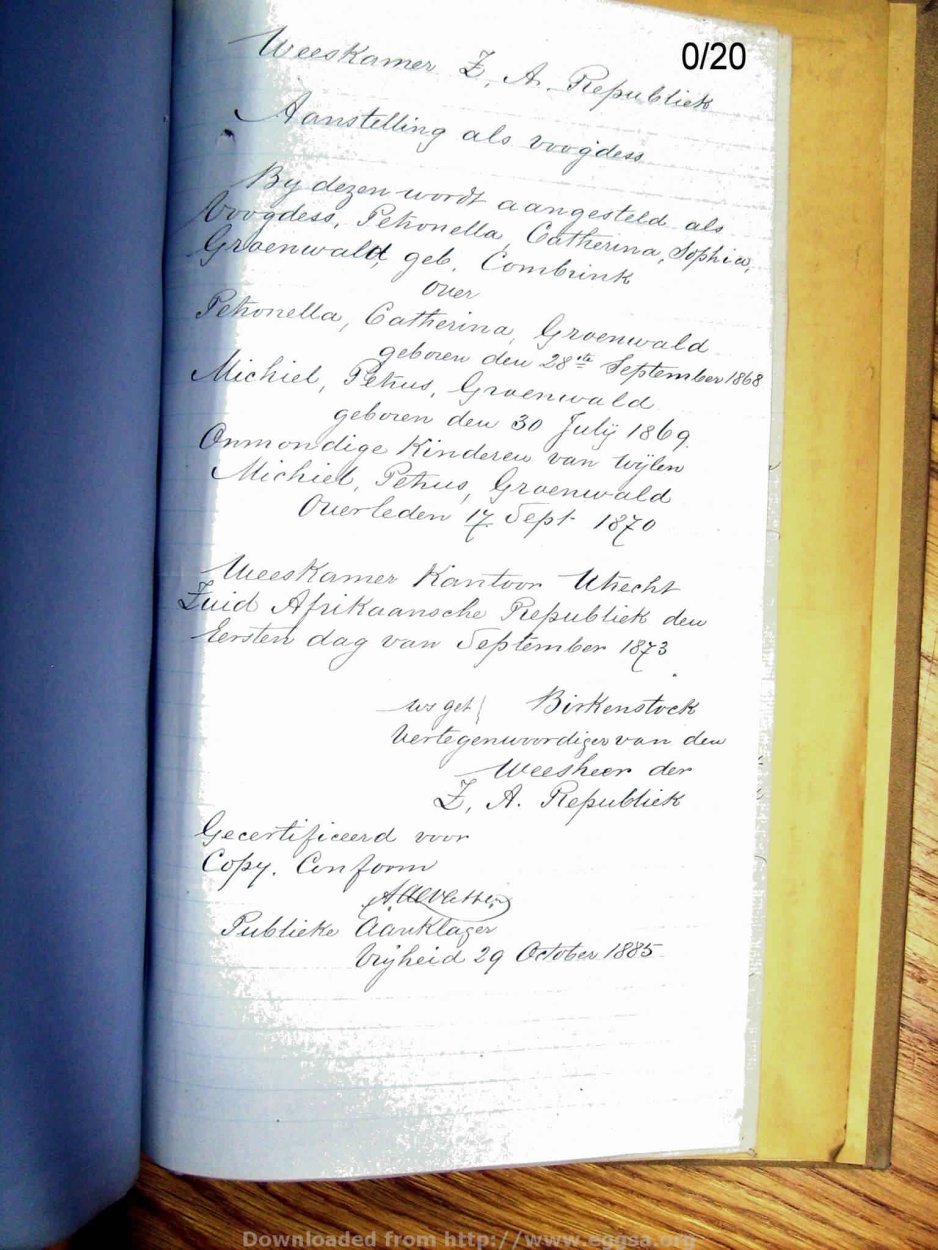 0/20
Weeskamer Z. A. Republiek
Aanstelling als voogdess
By dezen wordt aangesteld als
Voogdess, Petronella, Catherina, Sophia,
Groenwald, geb. Combrink
over
Petronella, Catherina, Groenwald
geboren den 28ste September 1868
Michiel, Petrus, Groenwald
geboren den 30 July 1869.
Onmondige Kinderen van wijlen
Michiel, Petrus, Groenwald
Overleden 17 Sept. 1870
Weeskamer Kantoor Utrecht
Zuid Afrikaansche Republiek den
Eersten dag van September 1873
get Birkenstock
Vertegenwoordiger van den
Weesheer der
Z, A. Republiek
Gecertificeerd voor
Copy. Conform
Publieke Aanklager
Vrijheid 29 October 1885
Downloaded from http://www.eggsa.org